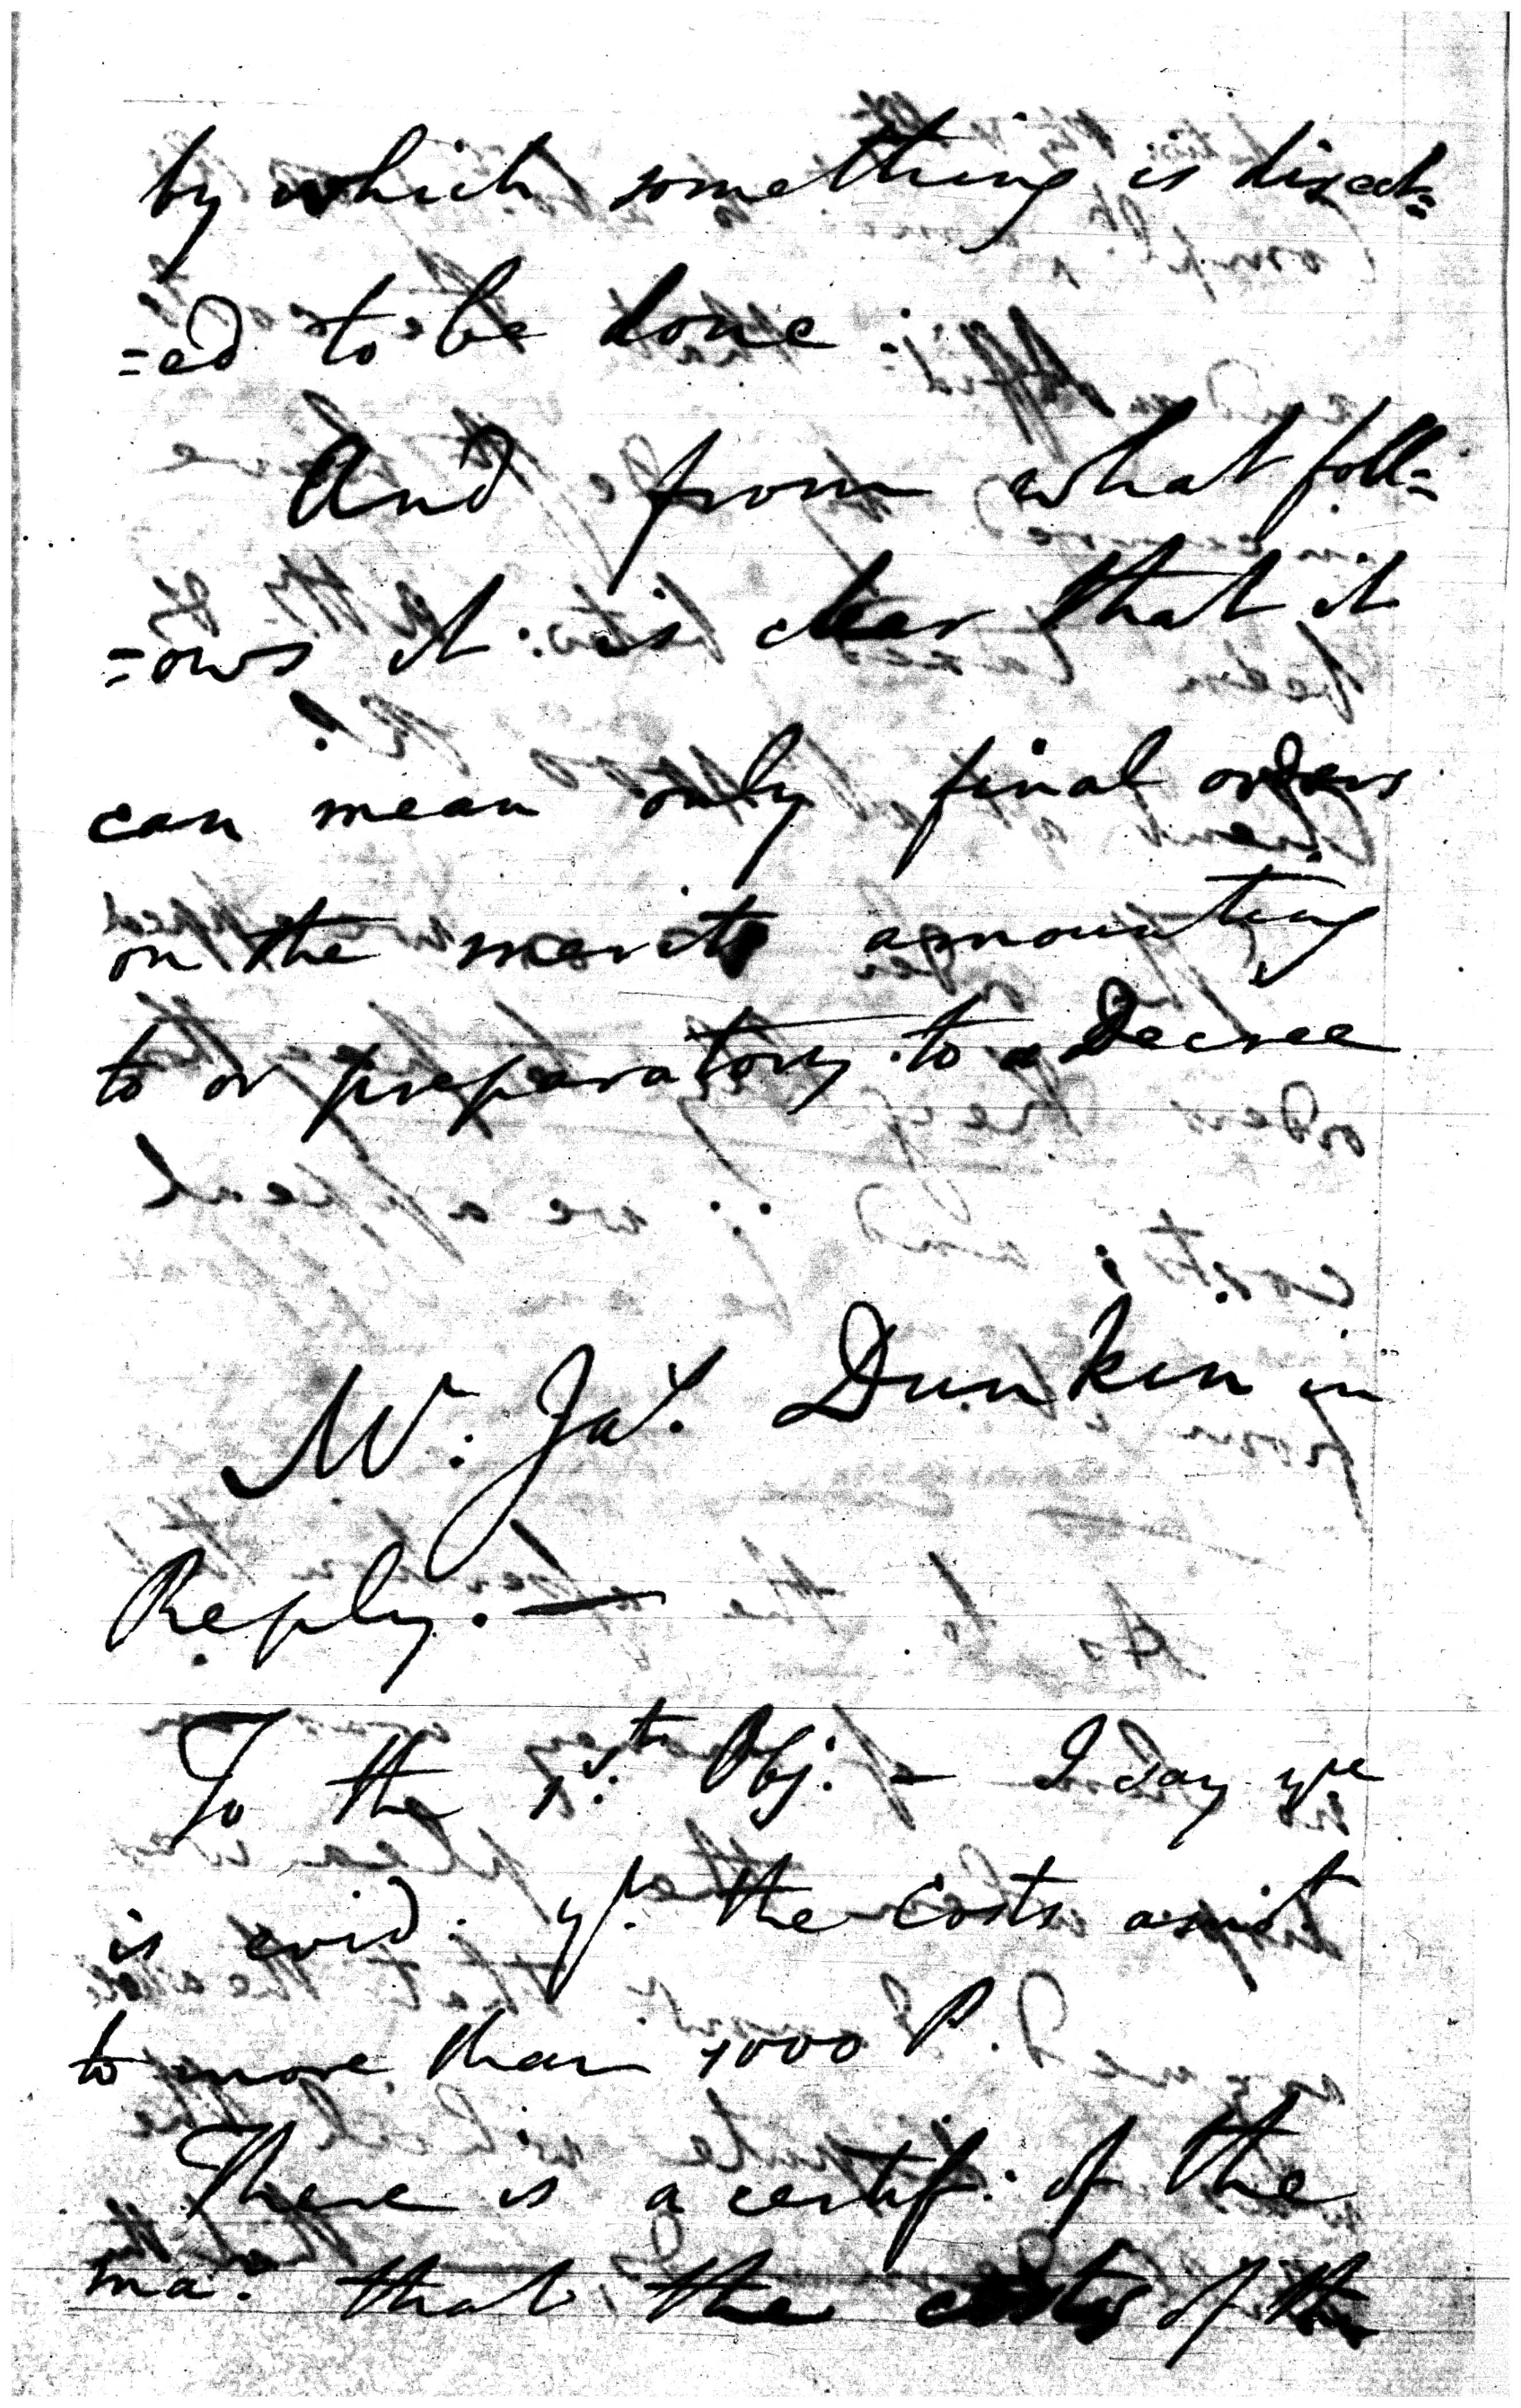 by which something is direct=
=ed to be done :
And from what foll=
=ows it is clear that it
can mean only final orders
on the merits amounting
to or preparatory to a Decree
Mr. Jas. Dunkin in
Reply. —
To the 1st. Obj. — I say yre
is evid. yt. the Costs amt
to more than 1000 P.
There is a certif. of the
mar. that the costs of the